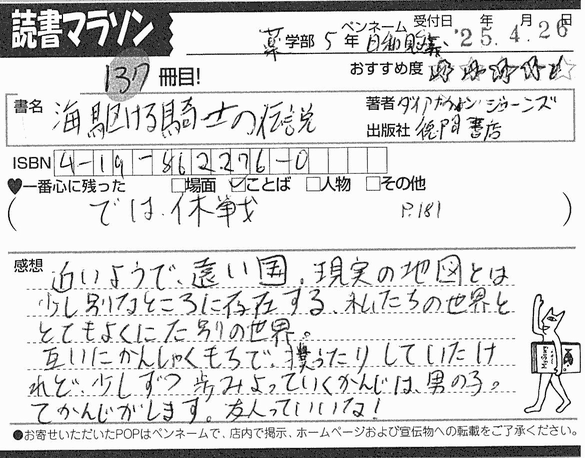 読書マラソン
受付日 年 月 日
薬学部 5年 ペンネーム '25.4.26
137冊目!
おすすめ度 ☆☆☆☆☆
書名 海駆ける騎士の伝説
著者 ダイアナ・ウィン・ジョーンズ
出版社 徳間書店
ISBN 4-19-862276-0
♥一番心に残った □場面 ☑ことば □人物 □その他
(では、休戦 P.181)
感想 近いようで、遠い国。現実の地図とは
少し別なところに存在する、私たちの世界と
とてもよくにた別の世界。
互いにかんしゃくもちで、撲ったりしていたけ
れど、少しずつ歩みよっていくかんじは、男の子。
てかんじがします。友人っていいな!
●お寄せいただいたPOPはペンネームで、店内で掲示、ホームページおよび宣伝物への転載をご了承ください。